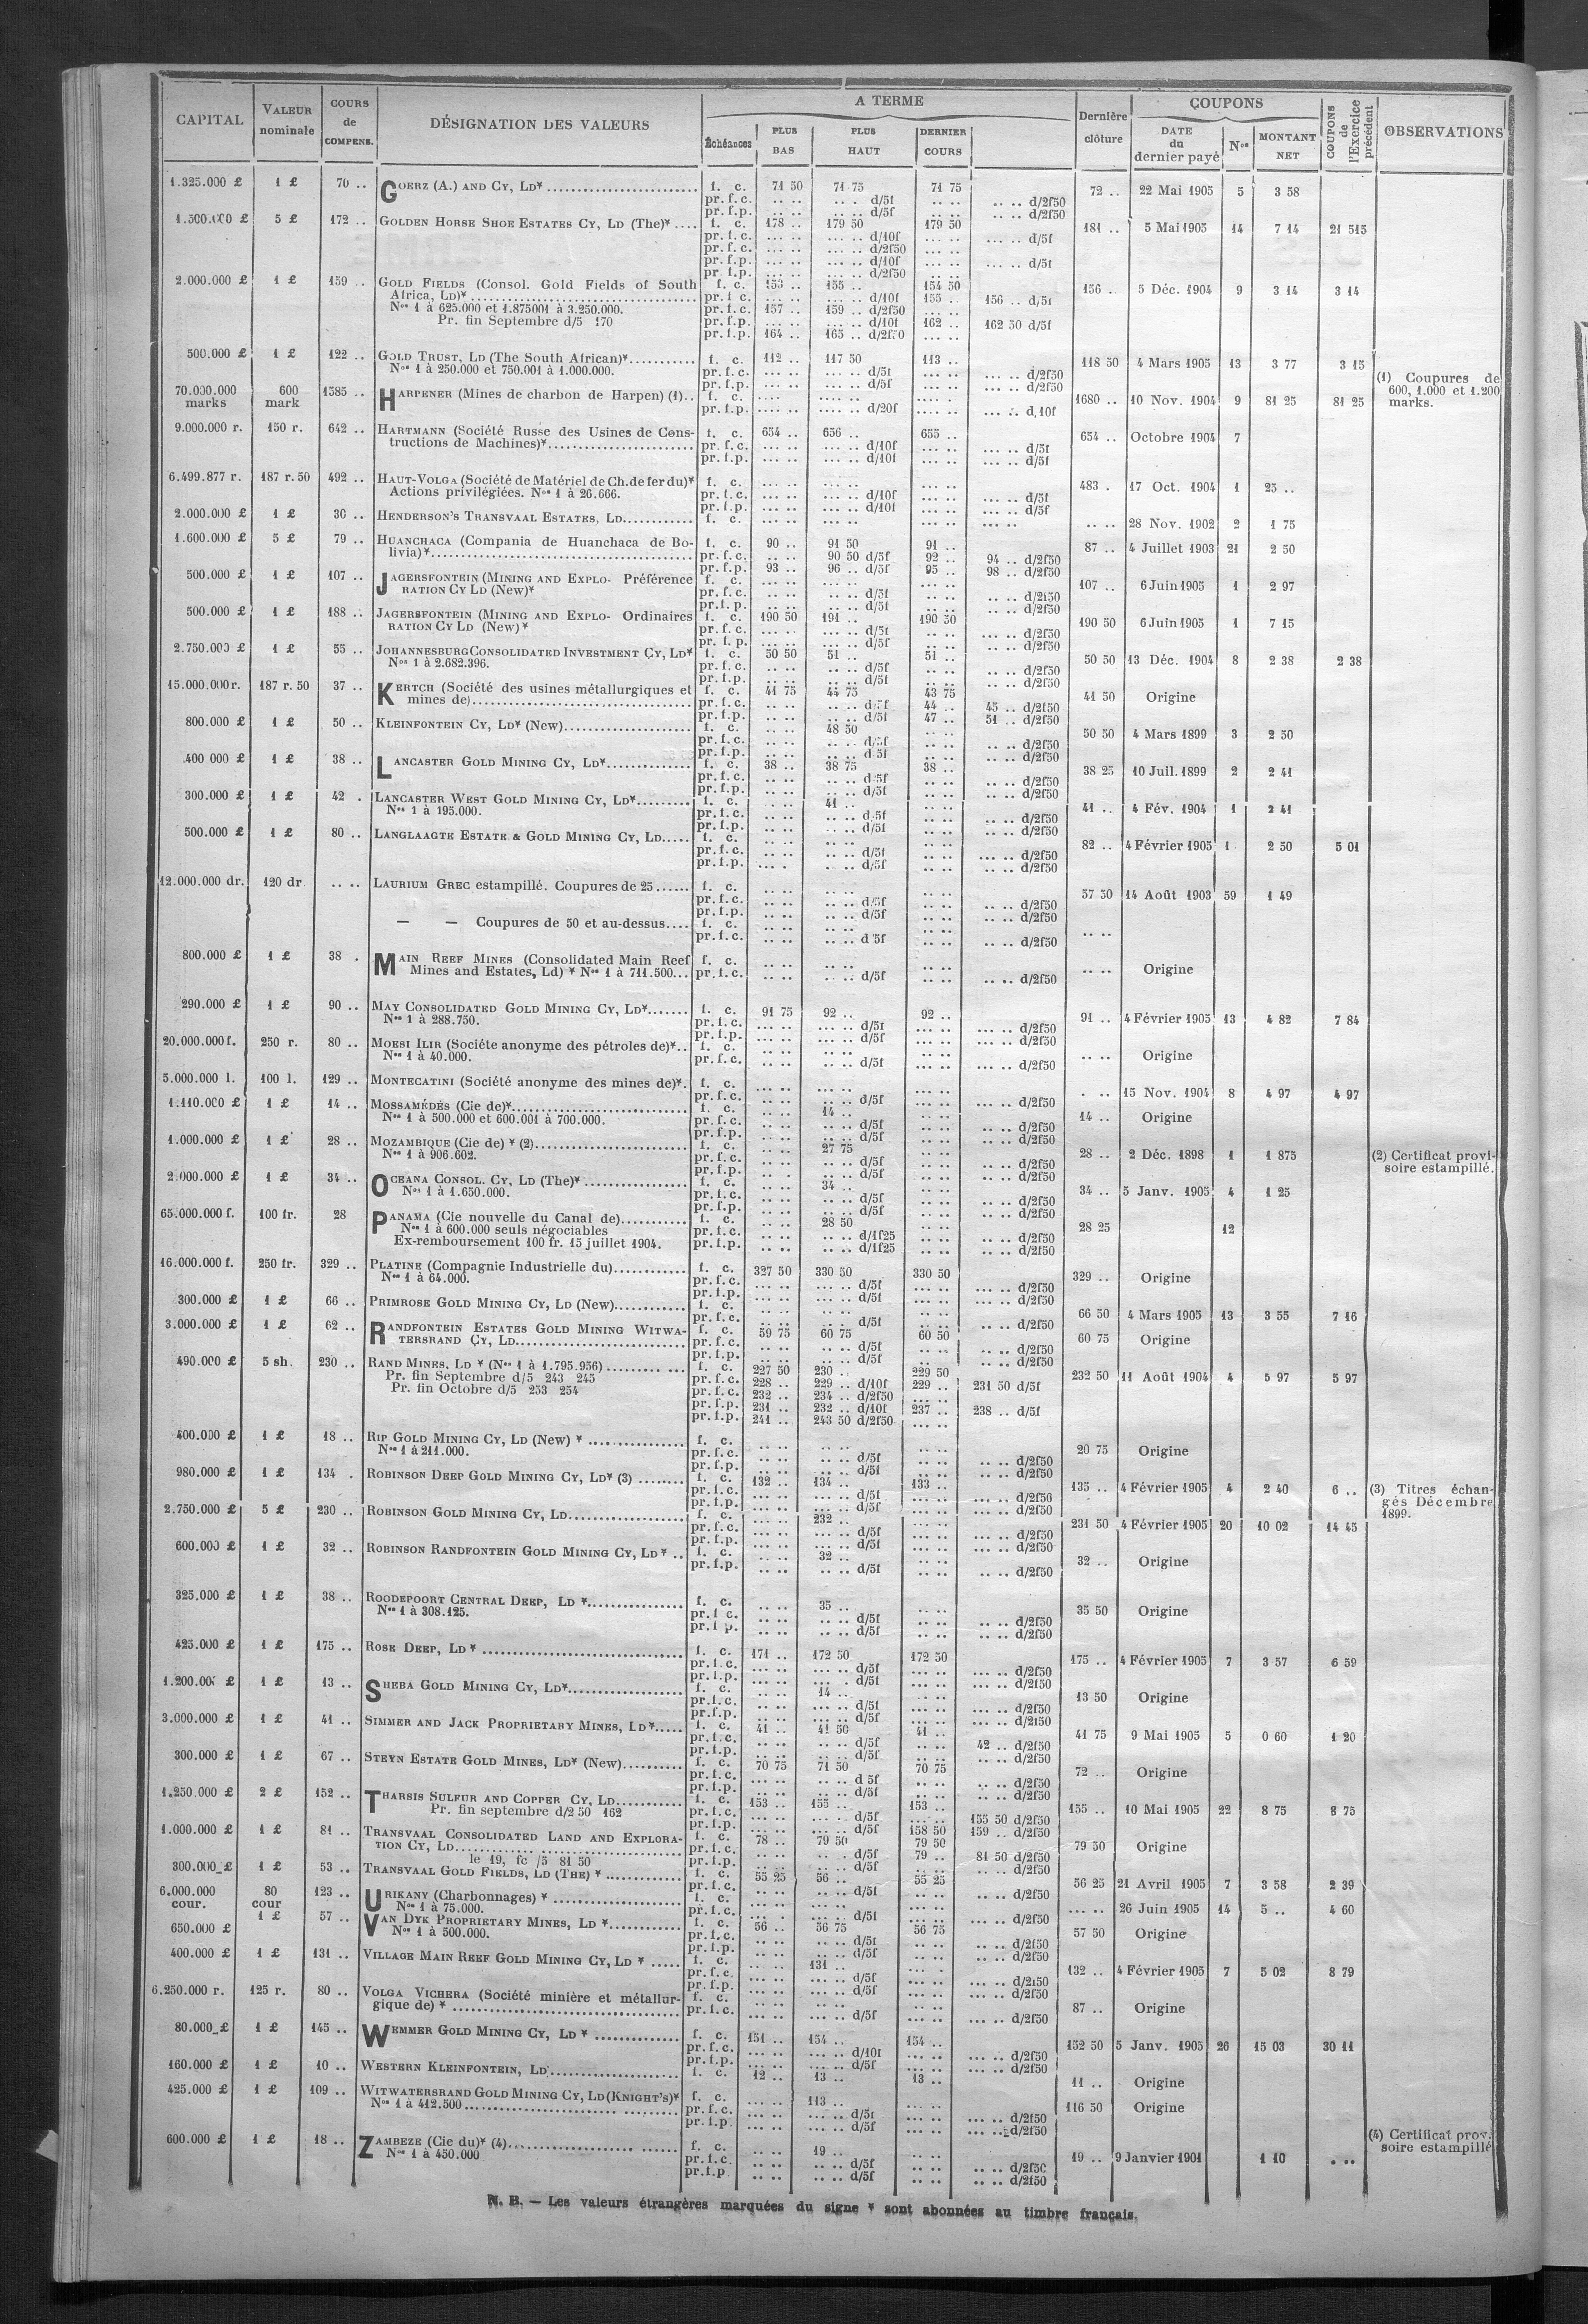 CAPITAL | VALEUR nominale | COURS de COMPENS. | DÉSIGNATION DES VALEURS | A TERME | Dernière clôture | COUPONS | COUPONS de l'Exercice précédent | OBSERVATIONS
Échéances | PLUS BAS | PLUS HAUT | DERNIER COURS | DATE du dernier payé | Nos | MONTANT NET
1.325.000 £ 1 £ 70 .. GOERZ (A.) AND CY, LD* f. c. 71 50 71 75 71 75 72 .. 22 Mai 1905 5 3 58
pr. f.c. .. .. .. . d/5f .. .. .. .. d/2f50
pr. f.p. .. .. .. .. d/5f .. .. .. .. d/2f50
1.500.000 £ 5 £ 172 .. GOLDEN HORSE SHOE ESTATES CY, LD (The)* .... f. c. 178 .. 179 50 179 50 181 .. 5 Mai 1905 14 7 14 21 515
pr. f.c. ... .. ... .. d/10f ... .. ... .. d/5f
pr. f.c. ... .. ... .. d/2f50 ... ..
pr. f.p. ... .. ... .. d/10f ... .. ... .. d/5f
pr. f.p. ... .. ... .. d/2f50
2.000.000 £ 1 £ 159 .. GOLD FIELDS (Consol. Gold Fields of South f. c. 153 .. 155 .. 154 50 156 .. 5 Déc. 1904 9 3 14 3 14
Africa, LD)* pr. f c. ... .. ... .. d/10f 155 .. 156 .. d/5f
Nos 1 à 625.000 et 1.875001 à 3.250.000. pr. f.c. 157 .. 159 .. d/2f50 ... ..
Pr. fin Septembre d/5 170 pr. f.p. ... .. ... .. d/10f 162 .. 162 50 d/5f
pr. f.p. 164 .. 165 .. d/2f50 ... ..
500.000 £ 1 £ 122 .. GOLD TRUST, LD (The South African)* f. c. 112 .. 117 50 113 .. 118 50 4 Mars 1905 13 3 77 3 15
Nos 1 à 250.000 et 750.001 à 1.000.000. pr. f.c. ... .. ... .. d/5f ... .. ... .. d/2f50
pr. f.p. ... .. ... .. d/5f ... .. ... .. d/2f50
70.000.000 marks 600 mark 1585 .. HARPENER (Mines de charbon de Harpen) (1).. f. c. 1680 .. 10 Nov. 1904 9 81 25 81 25 (1) Coupures de 600, 1.000 et 1.200 marks.
pr. f.p. .... .. .... .. d/20f .... .. d,10f
9.000.000 r. 150 r. 642 .. HARTMANN (Société Russe des Usines de Cons- f. c. 654 .. 656 .. 655 .. 654 .. Octobre 1904 7
tructions de Machines)* pr. f.c. ... .. ... .. d/10f ... .. ... .. d/5f
pr. f.p. ... .. ... .. d/10f ... .. ... .. d/5f
6.499.877 r. 187 r. 50 492 .. HAUT-VOLGA (Société de Matériel de Ch. de fer du)* f. c. ... .. ... .. ... .. 483 . 17 Oct. 1904 1 25 ..
Actions privilégiées. Nos 1 à 26.666. pr. f.c. ... .. ... .. d/10f ... .. ... .. d/5f
pr. f.p. ... .. ... .. d/10f ... .. ... .. d/5f
2.000.000 £ 1 £ 30 .. HENDERSON'S TRANSVAAL ESTATES, LD f. c. .. .. 28 Nov. 1902 2 1 75
1.600.000 £ 5 £ 79 .. HUANCHACA (Compania de Huanchaca de Bo- f. c. 90 .. 91 50 91 .. 87 .. 4 Juillet 1903 21 2 50
livia)* pr. f.c. .. .. 90 50 d/5f 92 .. 94 .. d/2f50
pr. f.p. 93 .. 96 .. d/5f 95 .. 98 .. d/2f50
500.000 £ 1 £ 107 .. JAGERSFONTEIN (MINING AND EXPLO- Préférence f. c. ... .. ... .. ... .. 107 .. 6 Juin 1905 1 2 97
RATION CY LD (New)* pr. f.c. .. .. .. .. d/5f .. .. .. .. d/2f50
pr. f. p. .. .. .. .. d/5f .. .. .. .. d/2f50
500.000 £ 1 £ 188 .. JAGERSFONTEIN (MINING AND EXPLO- Ordinaires f. c. 190 50 191 .. 190 50 190 50 6 Juin 1905 1 7 15
RATION CY LD (New)* pr. f.c. ... .. ... .. d/5f .. .. ... .. d/2f50
pr. f. p. ... .. ... .. d/5f .. .. ... .. d/2f50
2.750.000 £ 1 £ 55 .. JOHANNESBURG CONSOLIDATED INVESTMENT CY, LD* f. c. 50 50 51 .. 51 .. 50 50 13 Déc. 1904 8 2 38 2 38
Nos 1 à 2.682.396. pr. f.c. .. .. .. .. d/5f .. .. .. .. d/2f50
pr. f.p. .. .. .. .. d/5f .. .. .. .. d/2f50
15.000.000 r. 187 r. 50 37 .. KERTCH (Société des usines métallurgiques et f. c. 41 75 44 75 43 75 41 50 Origine
mines de) pr. f.c. .. .. .. .. d/5f 44 .. 45 .. d/2f50
pr. f.p. .. .. .. .. d/5f 47 .. 51 .. d/2f50
800.000 £ 1 £ 50 .. KLEINFONTEIN CY, LD* (New) f. c. .. .. 48 50 .. .. 50 50 4 Mars 1899 3 2 50
pr. f.c. .. .. .. .. d/5f .. .. .. .. d/2f50
pr. f.p. .. .. .. .. d 5f .. .. .. .. d/2f50
400 000 £ 1 £ 38 .. LANCASTER GOLD MINING CY, LD* f. c. 38 .. 38 75 38 .. 38 25 10 Juil. 1899 2 2 41
pr. f.c. .. .. .. .. d 5f .. .. .. .. d/2f50
pr. f.p. .. .. .. .. d/5f .. .. .. .. d/2f50
300.000 £ 1 £ 42 . LANCASTER WEST GOLD MINING CY, LD* f. c. .. .. 41 .. .. .. 41 .. 4 Fév. 1904 1 2 41
Nos 1 à 195.000. pr. f.c. .. .. .. .. d 5f .. .. .. .. d/2f50
pr. f.p. .. .. .. .. d/5f .. .. .. .. d/2f50
500.000 £ 1 £ 80 .. LANGLAAGTE ESTATE & GOLD MINING CY, LD f. c. .. .. .. .. .. .. 82 .. 4 Février 1905 1 2 50 5 01
pr. f.c. .. .. .. .. d/5f .. .. ... .. d/2f50
pr. f.p. .. . .. .. d/5f .. .. ... .. d/2f50
12.000.000 dr. 120 dr. .. .. LAURIUM GREC estampillé. Coupures de 25 f. c. .. .. .. .. .. .. 57 50 14 Août 1903 59 1 49
pr. f.c. .. .. .. .. d/5f .. .. .. .. d/2f50
pr. f.p. .. .. .. .. d/5f .. .. .. .. d/2f50
— — Coupures de 50 et au-dessus f. c. .. .. .. .. .. .. .. ..
pr. f.c. .. .. .. .. d 5f .. .. .. .. d/2f50
800.000 £ 1 £ 38 . MAIN REEF MINES (Consolidated Main Reef f. c. .. .. .. .. .. .. .. .. Origine
Mines and Estates, Ld) * Nos 1 à 711.500... pr. f.c. .. .. .. .. d/5f .. .. .. .. d/2f50
290.000 £ 1 £ 90 .. MAY CONSOLIDATED GOLD MINING CY, LD* f. c. 91 75 92 .. 92 .. 91 .. 4 Février 1905 13 4 82 7 84
Nos 1 à 288.750. pr. f.c. ... .. ... .. d/5f ... .. ... .. d/2f50
pr. f.p. ... .. ... .. d/5f ... .. ... .. d/2f50
20.000.000 f. 250 r. 80 .. MOESI ILIR (Sociéte anonyme des pétroles de)*.. f. c. .. .. .. .. .. .. .. .. Origine
Nos 1 à 40.000. pr. f.c. .. .. .. .. d/5f .. .. ... .. d/2f50
5.000.000 l. 100 l. 129 .. MONTECATINI (Société anonyme des mines de)*. f. c. ... .. ... .. . .. 15 Nov. 1904 8 4 97 4 97
pr. f.c. ... .. ... .. d/5f ... .. ... .. d/2f50
1.110.000 £ 1 £ 14 .. MOSSAMÉDÈS (Cie de)* f. c. .. .. 14 .. .. .. 14 .. Origine
Nos 1 à 500.000 et 600.001 à 700.000. pr. f.c. .. .. .. .. d/5f .. .. .. .. d/2f50
pr. f.p. .. .. .. .. d/5f .. .. .. .. d/2f50
1.000.000 £ 1 £ 28 .. MOZAMBIQUE (Cie de) * (2) f. c. .. .. 27 75 .. .. 28 .. 2 Déc. 1898 1 1 875 (2) Certificat provi-
Nos 1 à 906.602. pr. f.c. .. .. .. .. d/5f .. .. .. .. d/2f50 soire estampillé.
pr. f.p. .. . .. .. d/5f .. .. .. .. d/2f50
2.000.000 £ 1 £ 34 .. OCEANA CONSOL. CY, LD (The)* f. c. .. .. 34 .. .. .. 34 .. 5 Janv. 1905 4 1 25
Nos 1 à 1.650.000. pr. f.c. .. .. .. .. d/5f .. .. .. .. d/2f50
pr. f.p. .. .. .. .. d/5f .. .. .. .. d/2f50
65.000.000 f. 100 fr. 28 PANAMA (Cie nouvelle du Canal de) f. c. .. .. 28 50 .. .. 28 25 12
Nos 1 à 600.000 seuls négociables pr. f.c. .. .. .. .. d/1f25 .. .. .. .. d/2f50
Ex-remboursement 100 fr. 15 juillet 1904. pr. f.p. .. .. .. .. d/1f25 .. .. .. .. d/2f50
16.000.000 f. 250 fr. 329 .. PLATINE (Compagnie Industrielle du) f. c. 327 50 330 50 330 50 329 .. Origine
Nos 1 à 64.000. pr. f.c. ... .. ... .. d/5f ... .. ... .. d/2f50
pr. f.p. ... .. ... .. d/5f ... .. ... .. d/2f50
300.000 £ 1 £ 66 .. PRIMROSE GOLD MINING CY, LD (New) f. c. .. .. .. .. .. .. 66 50 4 Mars 1905 13 3 55 7 16
pr. f.c. .. .. .. .. d/5f .. .. .. .. d/2f50
3.000.000 £ 1 £ 62 .. RANDFONTEIN ESTATES GOLD MINING WITWA- f. c. 59 75 60 75 60 50 60 75 Origine
TERSRAND CY, LD pr. f.c. .. .. .. .. d/5f .. .. .. .. d/2f50
pr. f.p. .. .. .. .. d/5f .. .. .. .. d/2f50
490.000 £ 5 sh. 230 .. RAND MINES, LD * (Nos 1 à 1.795.956) f. c. 227 50 230 .. 229 50 232 50 11 Août 1904 4 5 97 5 97
Pr. fin Septembre d/5 243 245 pr. f.c. 228 .. 229 .. d/10f 229 .. 231 50 d/5f
Pr. fin Octobre d/5 253 254 pr. f.c. 232 .. 234 .. d/2f50 ... ..
pr. f.p. 231 .. 232 .. d/10f 237 .. 238 .. d/5f
pr. f.p. 241 .. 243 50 d/2f50 ... ..
400.000 £ 1 £ 18 .. RIP GOLD MINING CY, LD (New) * f. c. .. .. .. .. .. .. 20 75 Origine
Nos 1 à 211.000. pr. f.c. .. .. .. .. d/5f .. .. .. .. d/2f50
pr. f.p. .. .. .. .. d/5f .. .. .. .. d/2f50
980.000 £ 1 £ 134 . ROBINSON DEEP GOLD MINING CY, LD* (3) f. c. 132 .. 134 .. 133 .. 135 .. 4 Février 1905 4 2 40 6 .. (3) Titres échan-
pr. f.c. ... .. ... .. d/5f ... .. ... .. d/2f50 gés Décembre
pr. f.p. ... .. ... .. d/5f ... .. ... .. d/2f50 1899.
2.750.000 £ 5 £ 230 .. ROBINSON GOLD MINING CY, LD f. c. ... .. 232 .. ... .. 231 50 4 Février 1905 20 10 02 14 45
pr. f.c. ... .. ... .. d/5f ... .. ... .. d/2f50
pr. f.p. ... .. ... .. d/5f ... .. ... .. d/2f50
600.000 £ 1 £ 32 .. ROBINSON RANDFONTEIN GOLD MINING CY, LD * .. f. c. .. .. 32 .. .. .. 32 .. Origine
pr. f.p. .. .. .. .. d/5f .. .. .. .. d/2f50
325.000 £ 1 £ 38 .. ROODEPOORT CENTRAL DEEP, LD * f. c. .. .. 35 .. .. .. 35 50 Origine
Nos 1 à 308.125. pr. f c. .. .. .. .. d/5f .. .. .. .. d/2f50
pr. f p. .. .. .. .. d/5f .. .. .. .. d/2f50
425.000 £ 1 £ 175 .. ROSE DEEP, LD * f. c. 171 .. 172 50 172 50 175 .. 4 Février 1905 7 3 57 6 59
pr. f.c. ... .. ... .. d/5f ... .. ... .. d/2f50
pr. f.p. ... .. ... . d/5f ... .. ... .. d/2f50
1.200.000 £ 1 £ 13 .. SHEBA GOLD MINING CY, LD* f. c. .. .. 14 .. .. .. 13 50 Origine
pr. f.c. ... .. ... .. d/5f ... .. ... .. d/2f50
pr. f.p. ... .. ... .. d/5f ... .. ... .. d/2f50
3.000.000 £ 1 £ 41 .. SIMMER AND JACK PROPRIETARY MINES, LD* f. c. 41 .. 41 50 41 .. 41 75 9 Mai 1905 5 0 60 1 20
pr. f.c. .. .. .. .. d/5f .. .. 42 .. d/2f50
pr. f.p. .. .. .. .. d/5f .. .. .. .. d/2f50
300.000 £ 1 £ 67 .. STEYN ESTATE GOLD MINES, LD* (New) f. c. 70 75 71 50 70 75 72 .. Origine
pr. f.c. ... .. .. .. d 5f .. .. .. .. d/2f50
pr. f.p. ... .. .. .. d/5f .. .. .. .. d/2f50
1.250.000 £ 2 £ 152 .. THARSIS SULFUR AND COPPER CY, LD f. c. 153 .. 155 .. 153 .. 155 .. 10 Mai 1905 22 8 75 8 75
Pr. fin septembre d/2 50 162 pr. f.c. ... .. ... .. d/5f ... .. 155 50 d/2f50
pr. f.p. ... .. ... .. d/5f 158 50 159 .. d/2f50
1.000.000 £ 1 £ 81 .. TRANSVAAL CONSOLIDATED LAND AND EXPLORA- f. c. 78 .. 79 50 79 50 79 50 Origine
TION CY, LD pr. f.c. .. .. .. . d/5f 79 .. 81 50 d/2f50
le 19, fc /5 81 50 pr. f.p. .. .. .. .. d/5f .. .. .. .. d/2f50
300.000 £ 1 £ 53 .. TRANSVAAL GOLD FIELDS, LD (THE) * f. c. 55 25 56 .. 55 25 56 25 21 Avril 1905 7 3 58 2 39
pr. f.c. .. .. .. .. d/5f .. .. .. .. d/2f50
6.000.000 cour. 80 cour 123 .. URIKANY (Charbonnages) * f. c. ... .. 26 Juin 1905 14 5 .. 4 60
Nos 1 à 75.000. pr. f.c. ... . ... .. d/5f ... .. ... .. d/2f50
650.000 £ 1 £ 57 .. VAN DYK PROPRIETARY MINES, LD * f. c. 56 .. 56 75 56 75 57 50 Origine
Nos 1 à 500.000. pr. f.c. .. .. .. .. d/5f .. .. .. .. d/2f50
pr. f.p. .. .. .. .. d/5f .. .. .. .. d/2f50
400.000 £ 1 £ 131 .. VILLAGE MAIN REEF GOLD MINING CY, LD * f. c. ... .. 131 .. ... . 132 .. 4 Février 1905 7 5 02 8 79
pr. f.c. ... .. ... .. d/5f ... .. ... .. d/2f50
pr. f.p. ... .. ... .. d/5f ... .. ... .. d/2f50
6.250.000 r. 125 r. 80 .. VOLGA VICHERA (Société minière et métallur- f. c. .. .. .. .. .. .. 87 .. Origine
gique de) * pr. f.c. ... .. ... .. d/5f ... .. ... .. d/2f50
80.000 £ 1 £ 145 .. WEMMER GOLD MINING CY, LD * f. c. 151 .. 154 .. 154 .. 152 50 5 Janv. 1905 26 15 03 30 11
pr. f.c. ... .. ... .. d/10f ... .. ... .. d/2f50
pr. f.p. ... .. ... .. d/5f ... .. ... .. d/2f50
160.000 £ 1 £ 10 .. WESTERN KLEINFONTEIN, LD f. c. 12 .. 13 .. 13 .. 11 .. Origine
425.000 £ 1 £ 109 .. WITWATERSRAND GOLD MINING CY, LD (KNIGHT'S)* f. c. ... .. 113 .. ... .. 116 50 Origine
Nos 1 à 412.500 pr. f.c. ... .. ... .. d/5f ... .. ... .. d/2f50
pr. f.p. ... .. ... .. d/5f ... .. ... .. d/2f50
600.000 £ 1 £ 18 .. ZAMBEZE (Cie du)* (4) f. c. .. .. 19 .. .. .. 19 .. 9 Janvier 1901 1 10 . .. (4) Certificat prov.
Nos 1 à 450.000 pr. f.c. .. .. .. .. d/5f .. .. .. .. d/2f50 soire estampillé
pr. f.p. .. .. .. .. d/5f .. .. .. .. d/2f50
N. B. — Les valeurs étrangères marquées du signe * sont abonnées au timbre français.